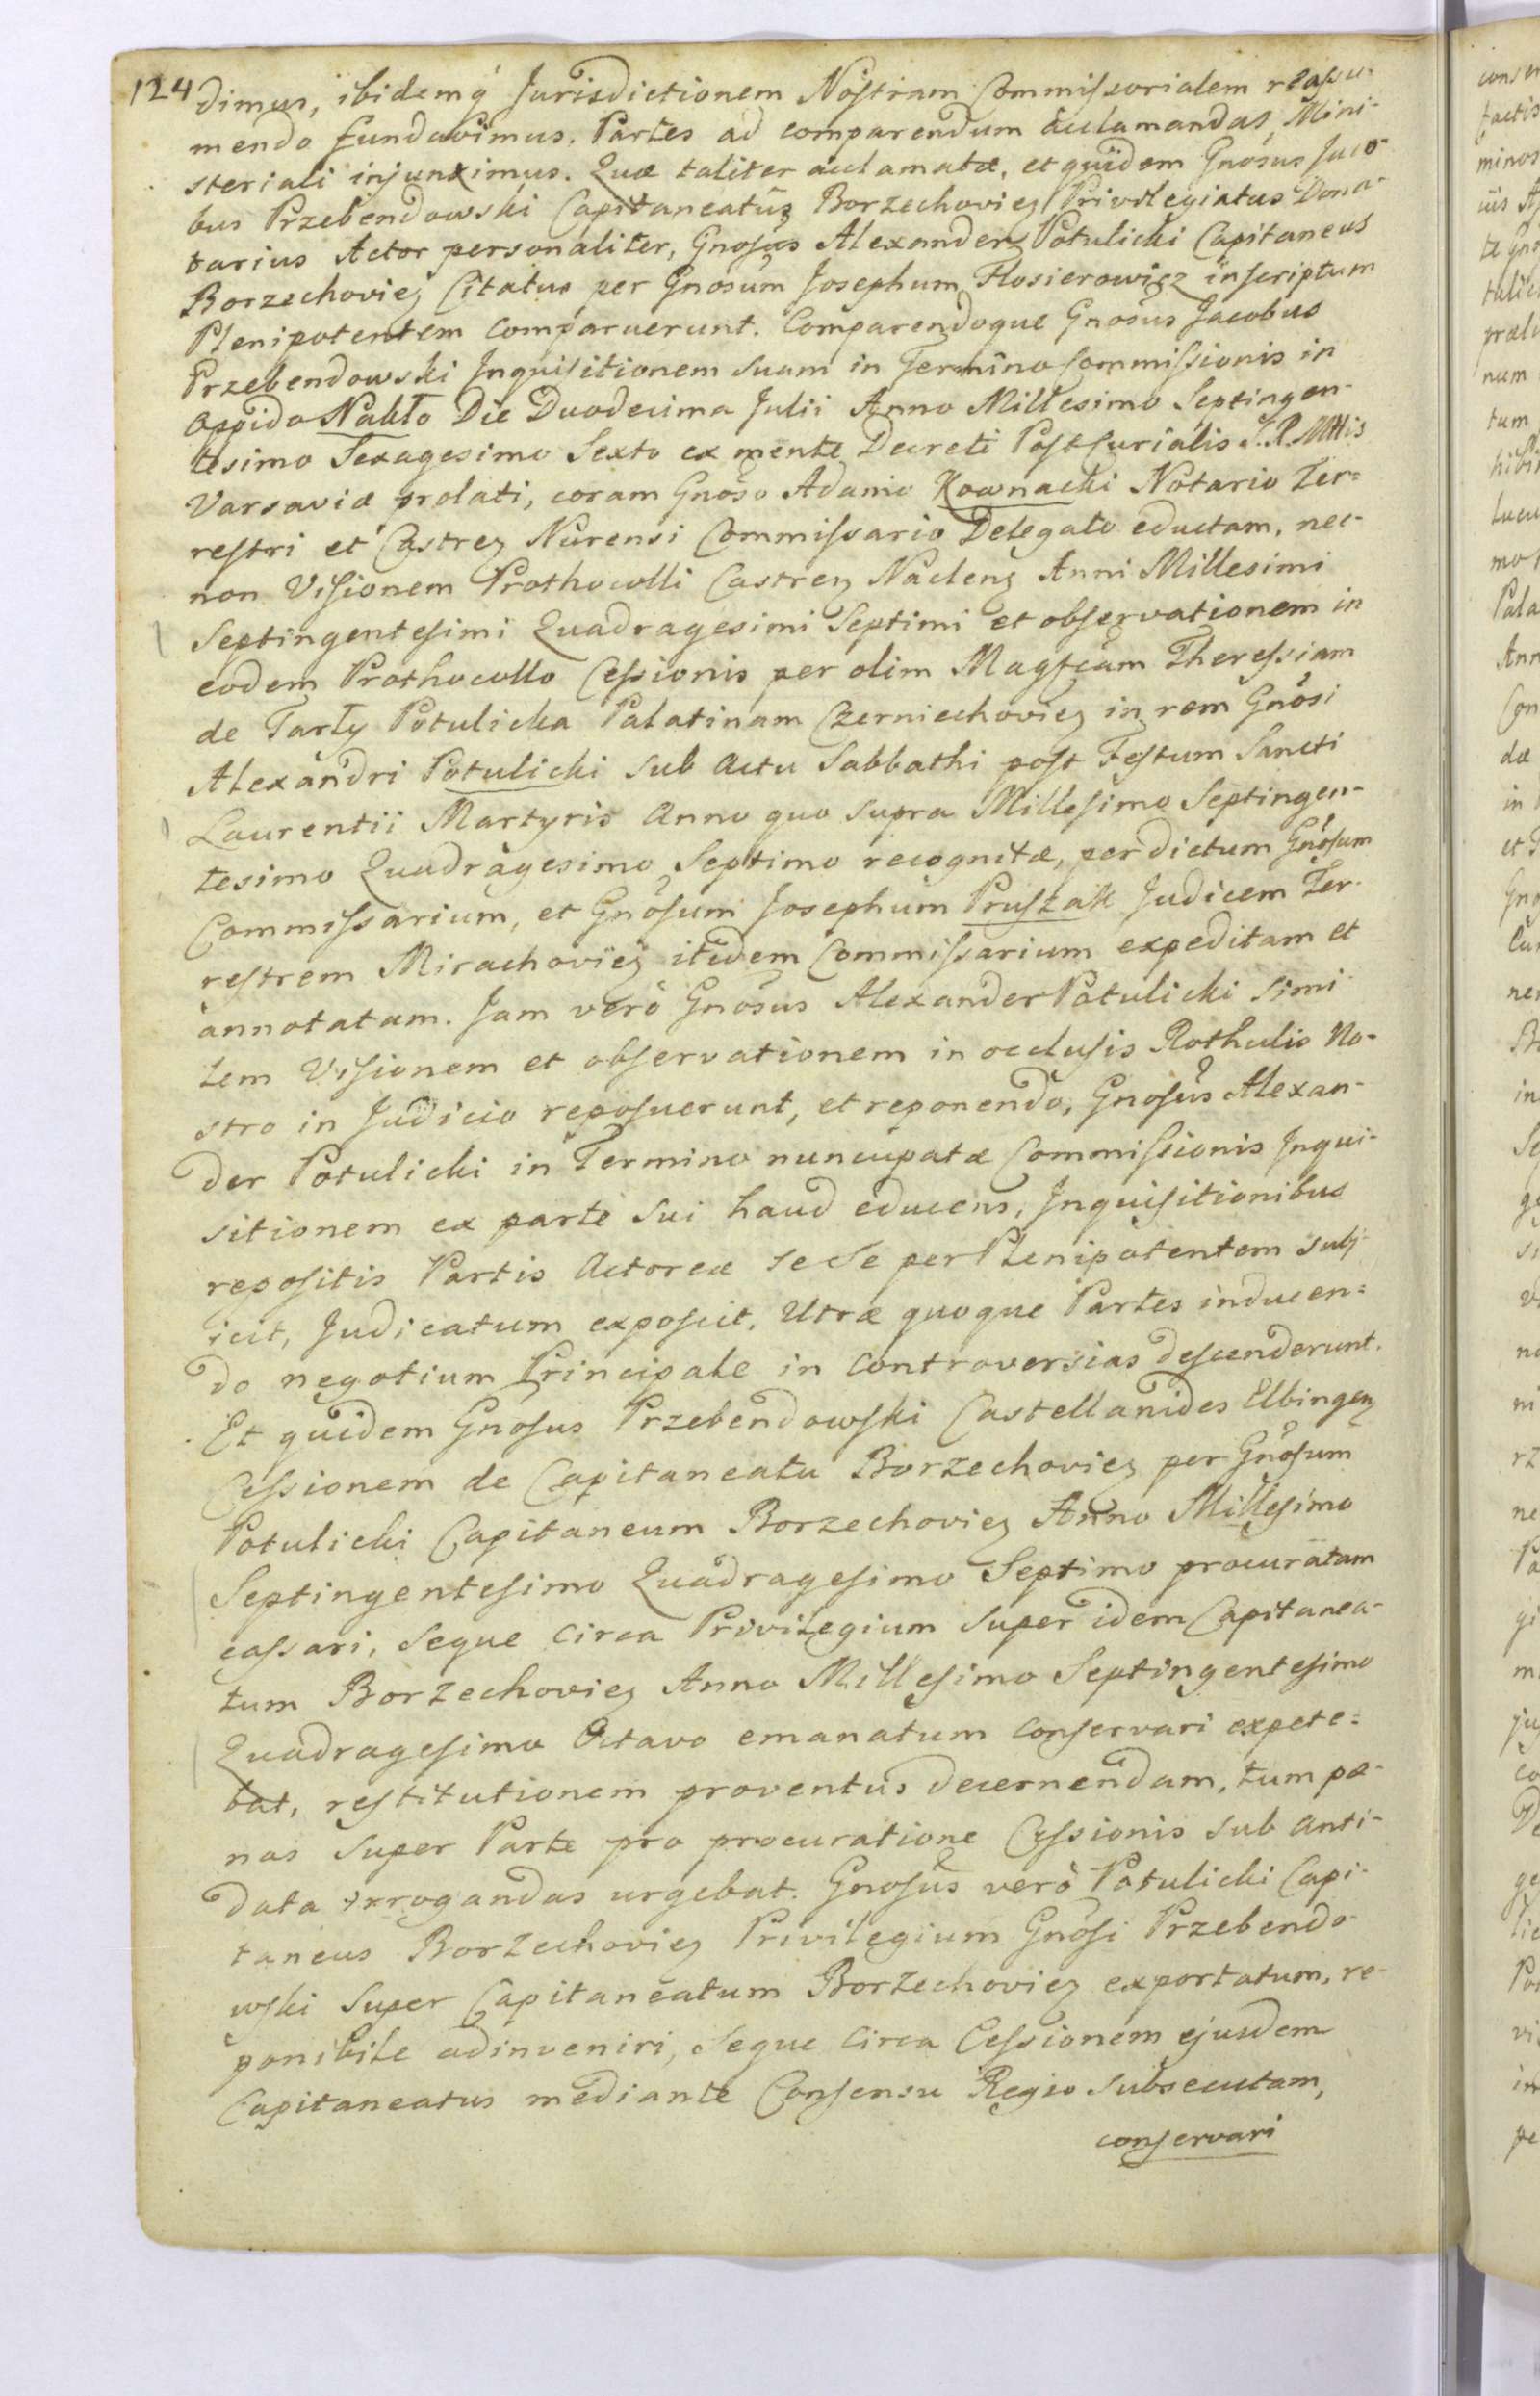 124 dimus, ibidemq́ Jurisdictionem Nostram Commissorialem reassu-
mendo fundavimus. Partes ad comparendum acclamandas, Mini-
steriali injunximus. Quæ taliter acclamatæ, et quidem Gnosus Jaco-
bus Przebendowski Capitaneatûs Borzechoviez Privilegiatus Dona-
tarius Actor personaliter, Gnosus Alexander Potulicki Capitaneus
Borzechoviez Citatus per Gnosum Josephum Flosierowicz inscriptum
Plenipotentem comparuerunt. Comparendoque Gnosus Jacobus
Przebendowski Inquisitionem suam in Termino Commissionis in
Oppido Nakło Die Duodecima Julii Anno Millesimo Septingen-
tesimo Sexagesimo Sexto ex mente Decreti Post Curialis S.R.Mttis
Varsaviæ prolati, coram Gnoso Adamo Kownacki Notario Ter=
restri et Castrez Nurensi Commissario Delegato eductam, nec-
non Visionem Prothocolli Castrez Naclenz Anni Millesimi
Septingentesimi Quadragesimi Septimi et observationem in
eodem Prothocollo Cessionis per olim Magficam Theressiam
de Tarły Potulicka Palatinam Czerniechoviez in rem Gnosi
Alexandri Potulicki sub actu Sabbathi post Festum Sancti
Laurentii Martyris anno quo supra Millesimo Septingen-
tesimo Quadragesimo Septimo recognitæ, per dictum Gnosum
Commissarium, et Gnosum Josephum Pruszak Judicem Ter-
restrem Mirachoviez itidem Commissarium expeditam et
annotatam. Jam verò Gnosus Alexander Potulicki simi
lem Visionem et observationem in occlusis Rothulis No-
stro in Judicio reposuerunt, et reponendo, Gnosus Alexan-
der Potulicki in Termino nuncupatæ Commissionis Inqui-
sitionem ex parte sui haud educens, Inquisitionibus
repositis Partis Actoreæ se se per Plenipotentem subj-
icit, Judicatum exposcit. Utræ quoque Partes inducen=
do negotium Principale in controversias descenderunt.
Et quidem Gnosus Przebendowski Castellanides Elbingenz
Cessionem de Capitaneatu Borzechoviez per Gnosum
Potulicki Capitaneum Borzechoviez Anno Millesimo
Septingentesimo Quadragesimo Septimo procuratam
cassari, seque circa Privilegium super idem Capitanea-
tum Borzechoviez Anno Millesimo Septingentesimo
Quadragesimo Octavo emanatum conservari expete=
bat, restitutionem proventus decernendam, tum pæ-
nas super Parte pro procuratione Cessionis sub anti-
data irrogandas urgebat. Gnosus verò Potulicki Capi-
taneus Borzechoviez Privilegium Gnosi Przebendo-
wski super Capitaneatum Borzechoviez exportatum, re-
ponibile adinveniri, seque circa Cessionem ejusdem
Capitaneatus mediante Consensu Regio subsecutam,
conservari